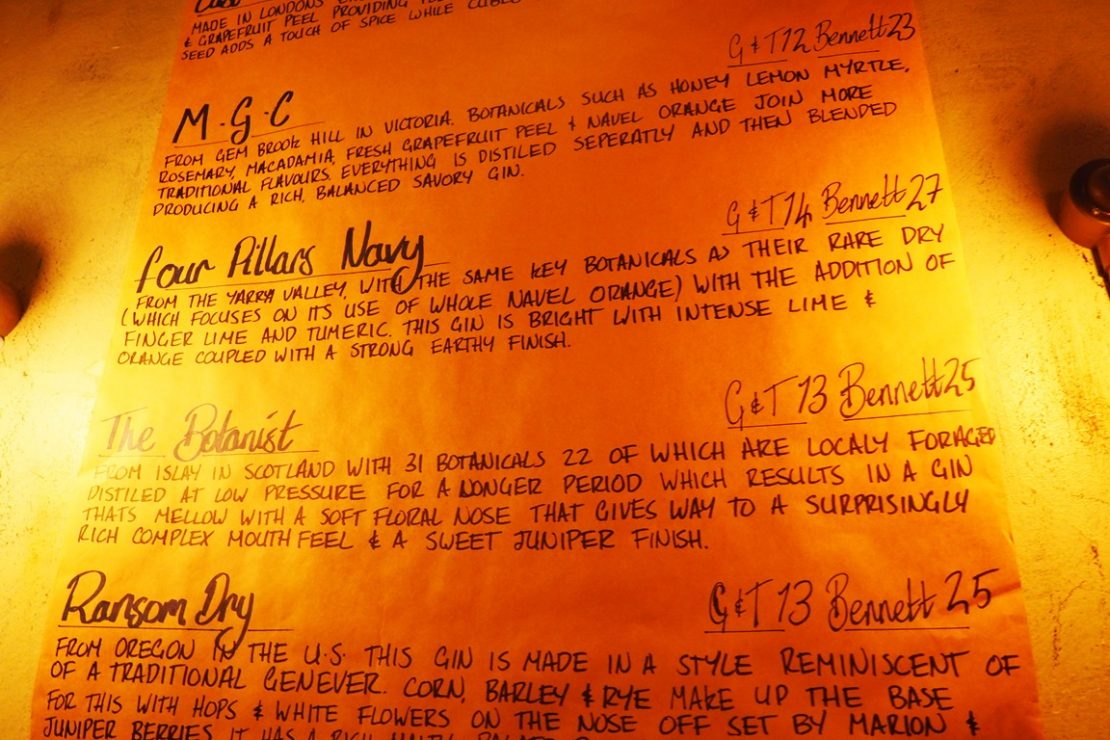 MADE IN LONDONS
& GRAPEFRUIT PEEL PROVIDING
SEED ADDS A TOUCH OF SPICE WHILE
M.G.C
G&T12 Bennett23
FROM GEM BROOK HILL IN VICTORIA. BOTANICALS SUCH AS HONEY LEMON MYRTLE,
ROSEMARY, MACADAMIA, FRESH GRAPEFRUIT PEEL & NAVEL ORANGE JOIN MORE
TRADITIONAL FLAVOURS. EVERYTHING IS DISTILED SEPERATLY AND THEN BLENDED
PRODUCING A RICH, BALANCED SAVORY GIN.
Four Pillars Navy
G&T14 Bennett27
FROM THE YARRA VALLEY, WITH THE SAME KEY BOTANICALS AS THEIR RARE DRY
(WHICH FOCUSES ON ITS USE OF WHOLE NAVEL ORANGE) WITH THE ADDITION OF
FINGER LIME AND TUMERIC. THIS GIN IS BRIGHT WITH INTENSE LIME &
ORANGE COUPLED WITH A STRONG EARTHY FINISH.
The Botanist
G&T 13 Bennett25
FROM ISLAY IN SCOTLAND WITH 31 BOTANICALS 22 OF WHICH ARE LOCALY FORAGED
DISTILED AT LOW PRESSURE FOR A LONGER PERIOD WHICH RESULTS IN A GIN
THATS MELLOW WITH A SOFT FLORAL NOSE THAT GIVES WAY TO A SURPRISINGLY
RICH COMPLEX MOUTH FEEL & A SWEET JUNIPER FINISH.
Ransom Dry
G&T 13 Bennett 25
FROM OREGON IN THE U.S. THIS GIN IS MADE IN A STYLE REMINISCENT OF
OF A TRADITIONAL GENEVER. CORN, BARLEY & RYE MAKE UP THE BASE
FOR THIS WITH HOPS & WHITE FLOWERS ON THE NOSE OFF SET BY MARION &
JUNIPER BERRIES IT HAS A RICH